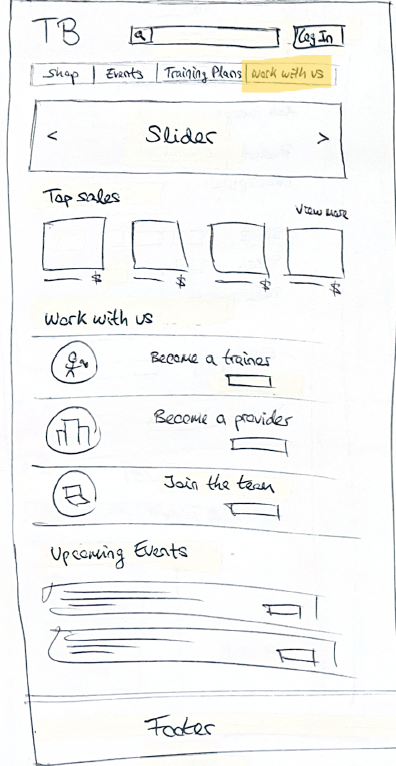 TB Log In
Shop Events Training Plans Work with us
< Slider >
Top sales
View more
$ $ $ $
Work with us
Become a trainer
Become a provider
Join the team
Upcoming Events
Footer